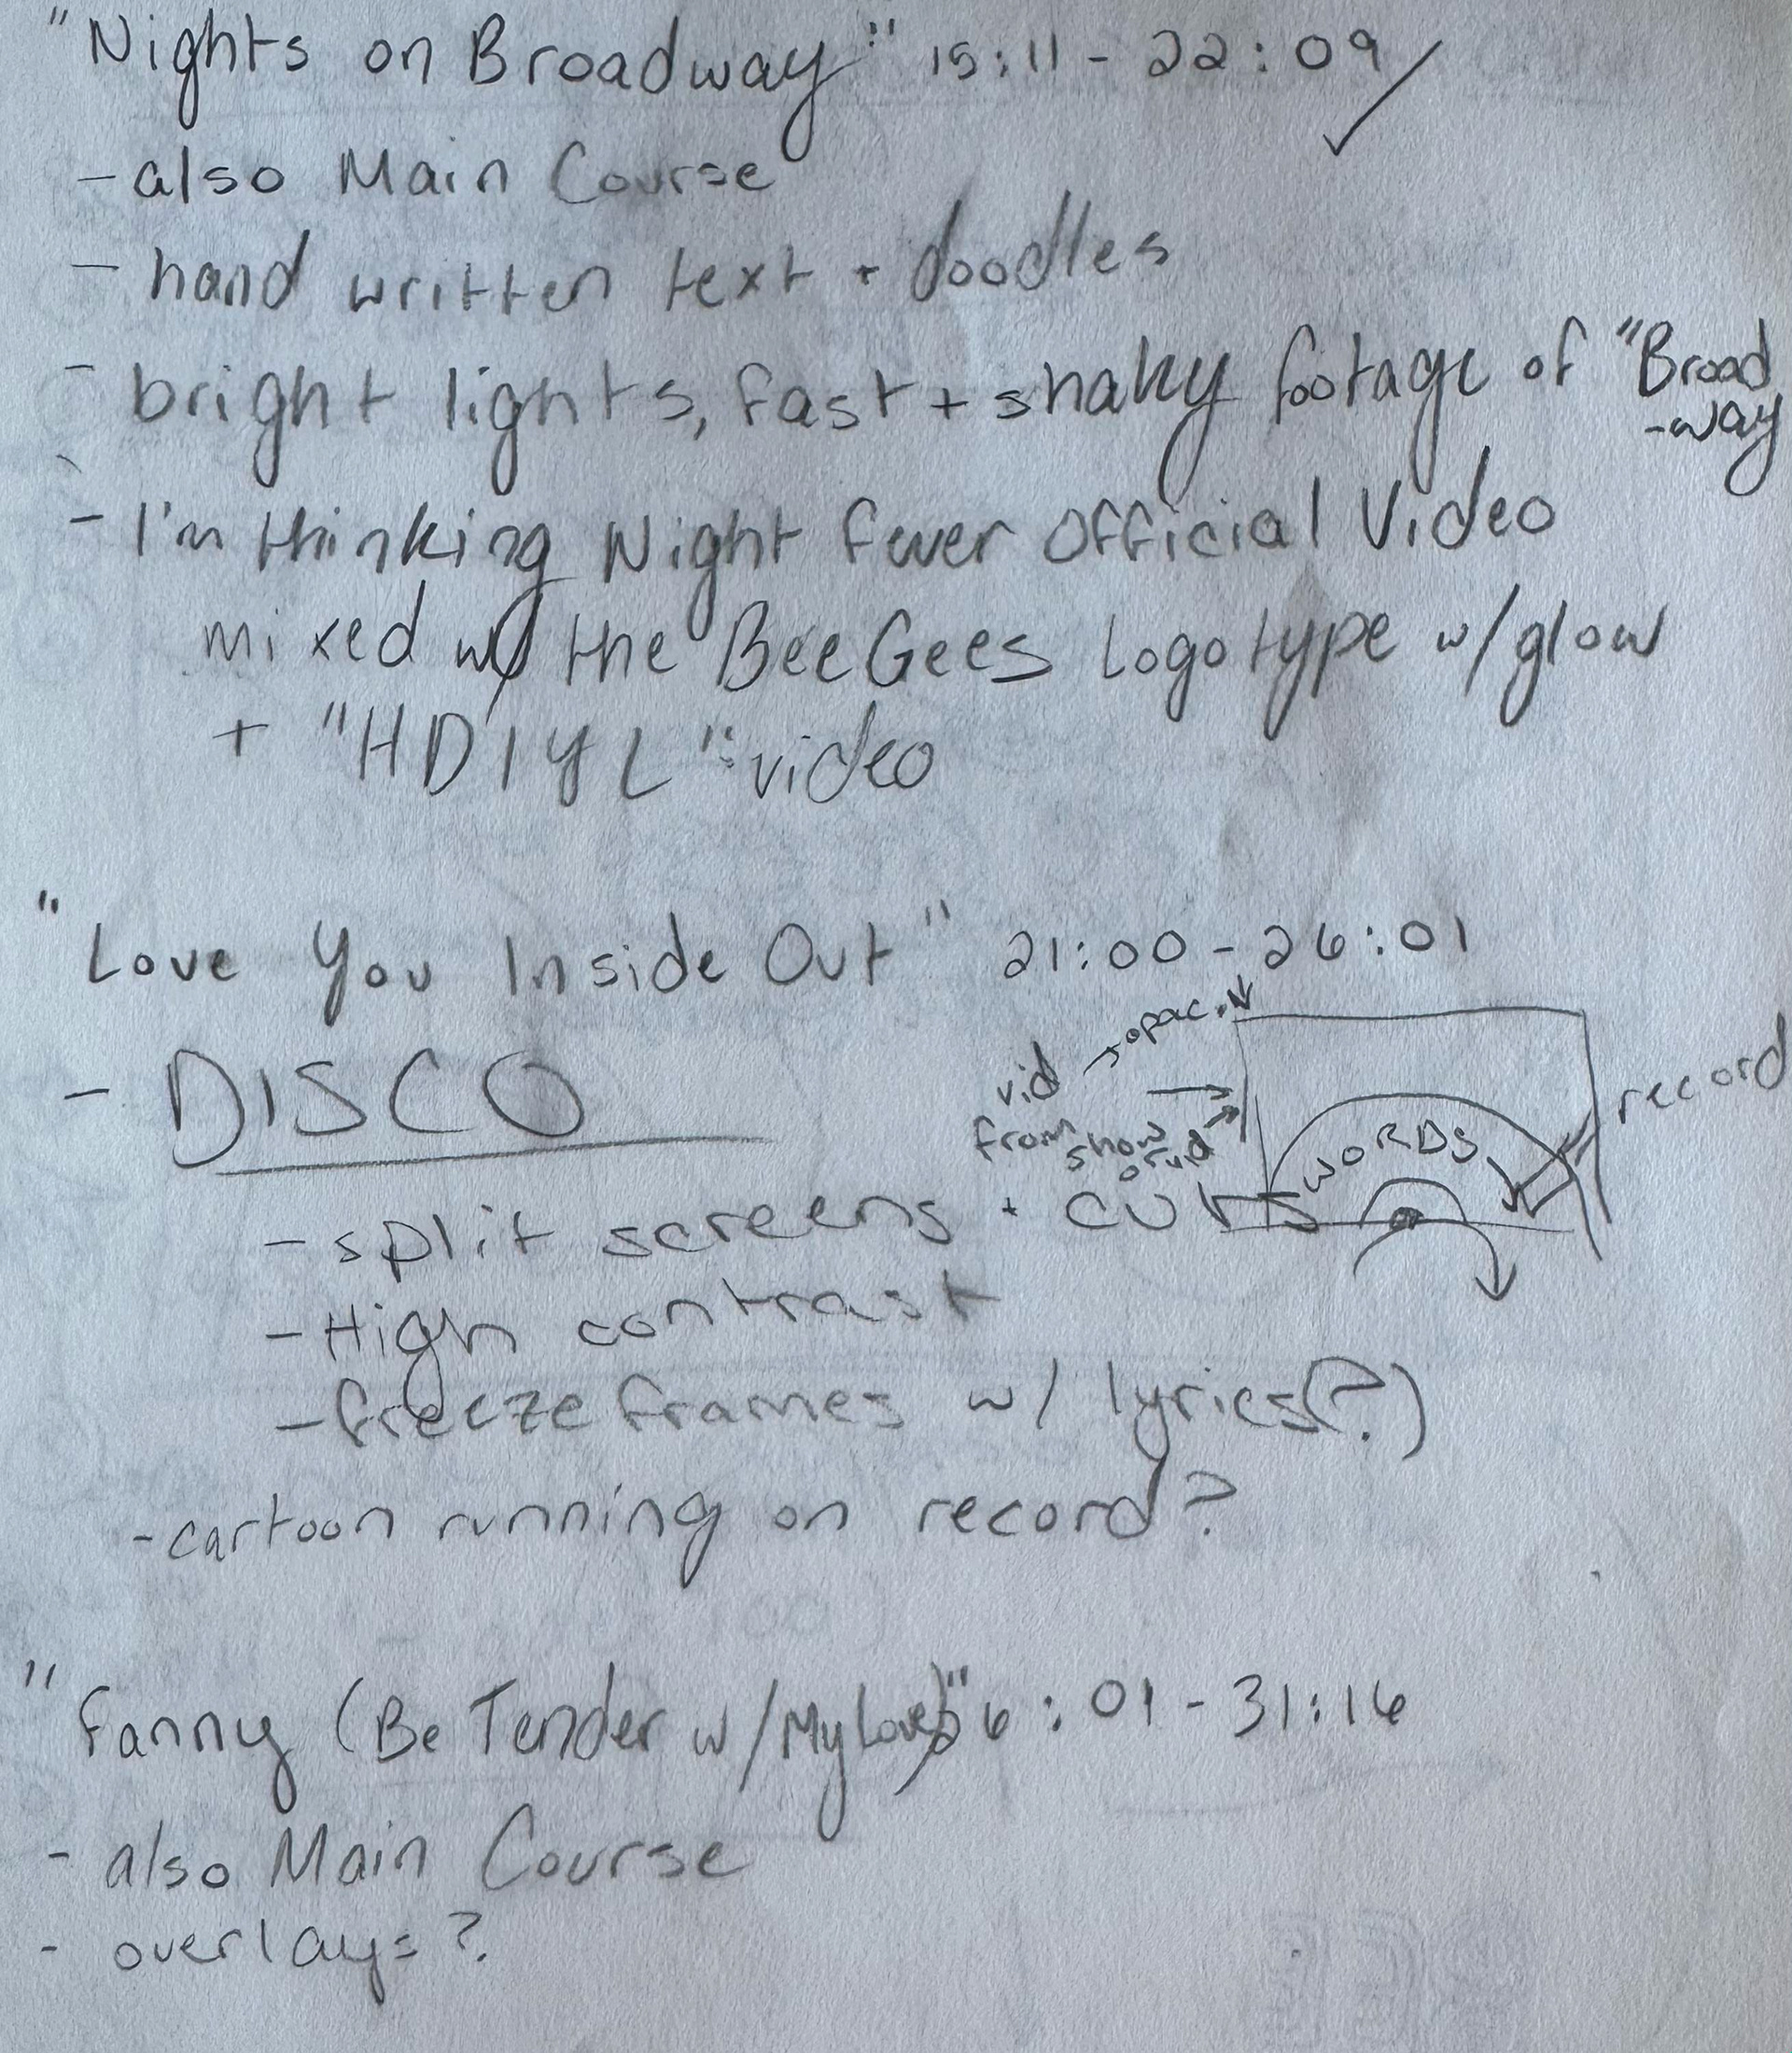 "Nights on Broadway" 15:11 - 22:09
- also Main Course
- hand written text + doodles
- bright lights, fast + shaky footage of "Broad
-way
- I'm thinking Night Fever Official Video
mixed w/ the Bee Gees Logotype w/glow
+ "HDIYL" video
"Love You Inside Out" 21:00 - 26:01
- DISCO
vid → opac.
from show
or vid
record
WORDS
- split screens + cuts
- High contrast
- freeze frames w/ lyrics(?)
- cartoon running on record?
"Fanny (Be Tender w/ My Love)" 6:01 - 31:16
- also Main Course
- overlays?